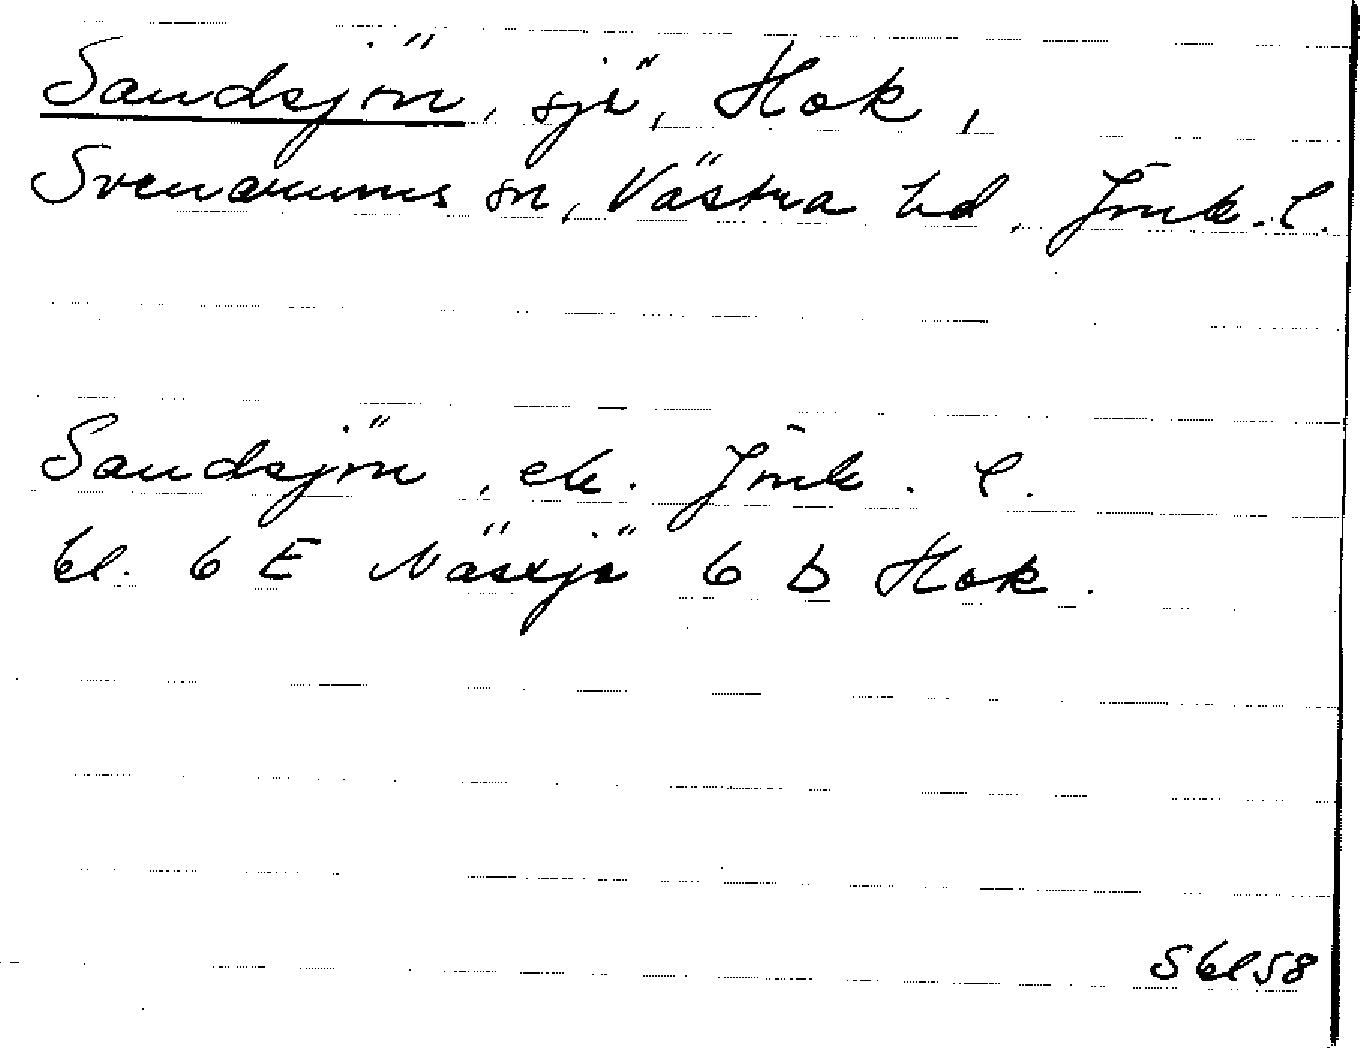 Sandsjön, sjö, Hok,
Svenarums sn, Västra hd, Jönk. l.
Sandsjön, ek. Jönk. l.
bl. 6 E Nässjö 6 b Hok.
S bl 58